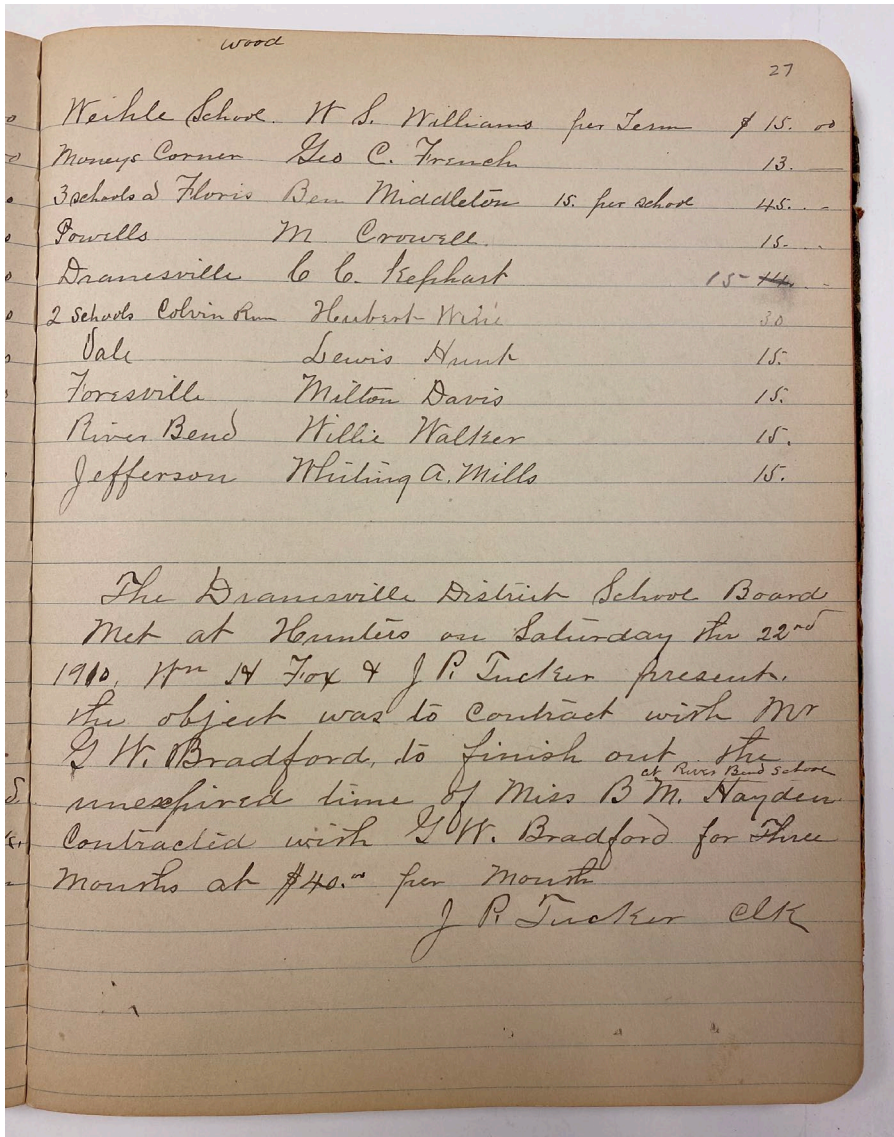 wood
27
Weihle School. W S. Williams per Term $ 15. 00
Moneys Corner Geo C. French 13. —
3 schools a Floris Ben Middleton 15. per school 45. -
Powells M Crowell. 15. -
Dranesville C C. Kephart 15- 14. -
2 Schools Colvin Run Herbert 30
Vale Lewis Hunt 15.
Foresville Milton Davis 15.
River Bend Willie Walker 15.
Jefferson Whiting A. Mills 15.
The Dranesville District School Board
Met at Hunters on Saturday the 22nd
1910, Wm H Fox & J P. Tucker present.
the object was to contract with Mr
G W. Bradford, to finish out the
at River Bend School
unexpired time of Miss B M. Hayden
Contracted with G W. Bradford for Three
Months at $40.00 per Month
J P. Tucker Clk